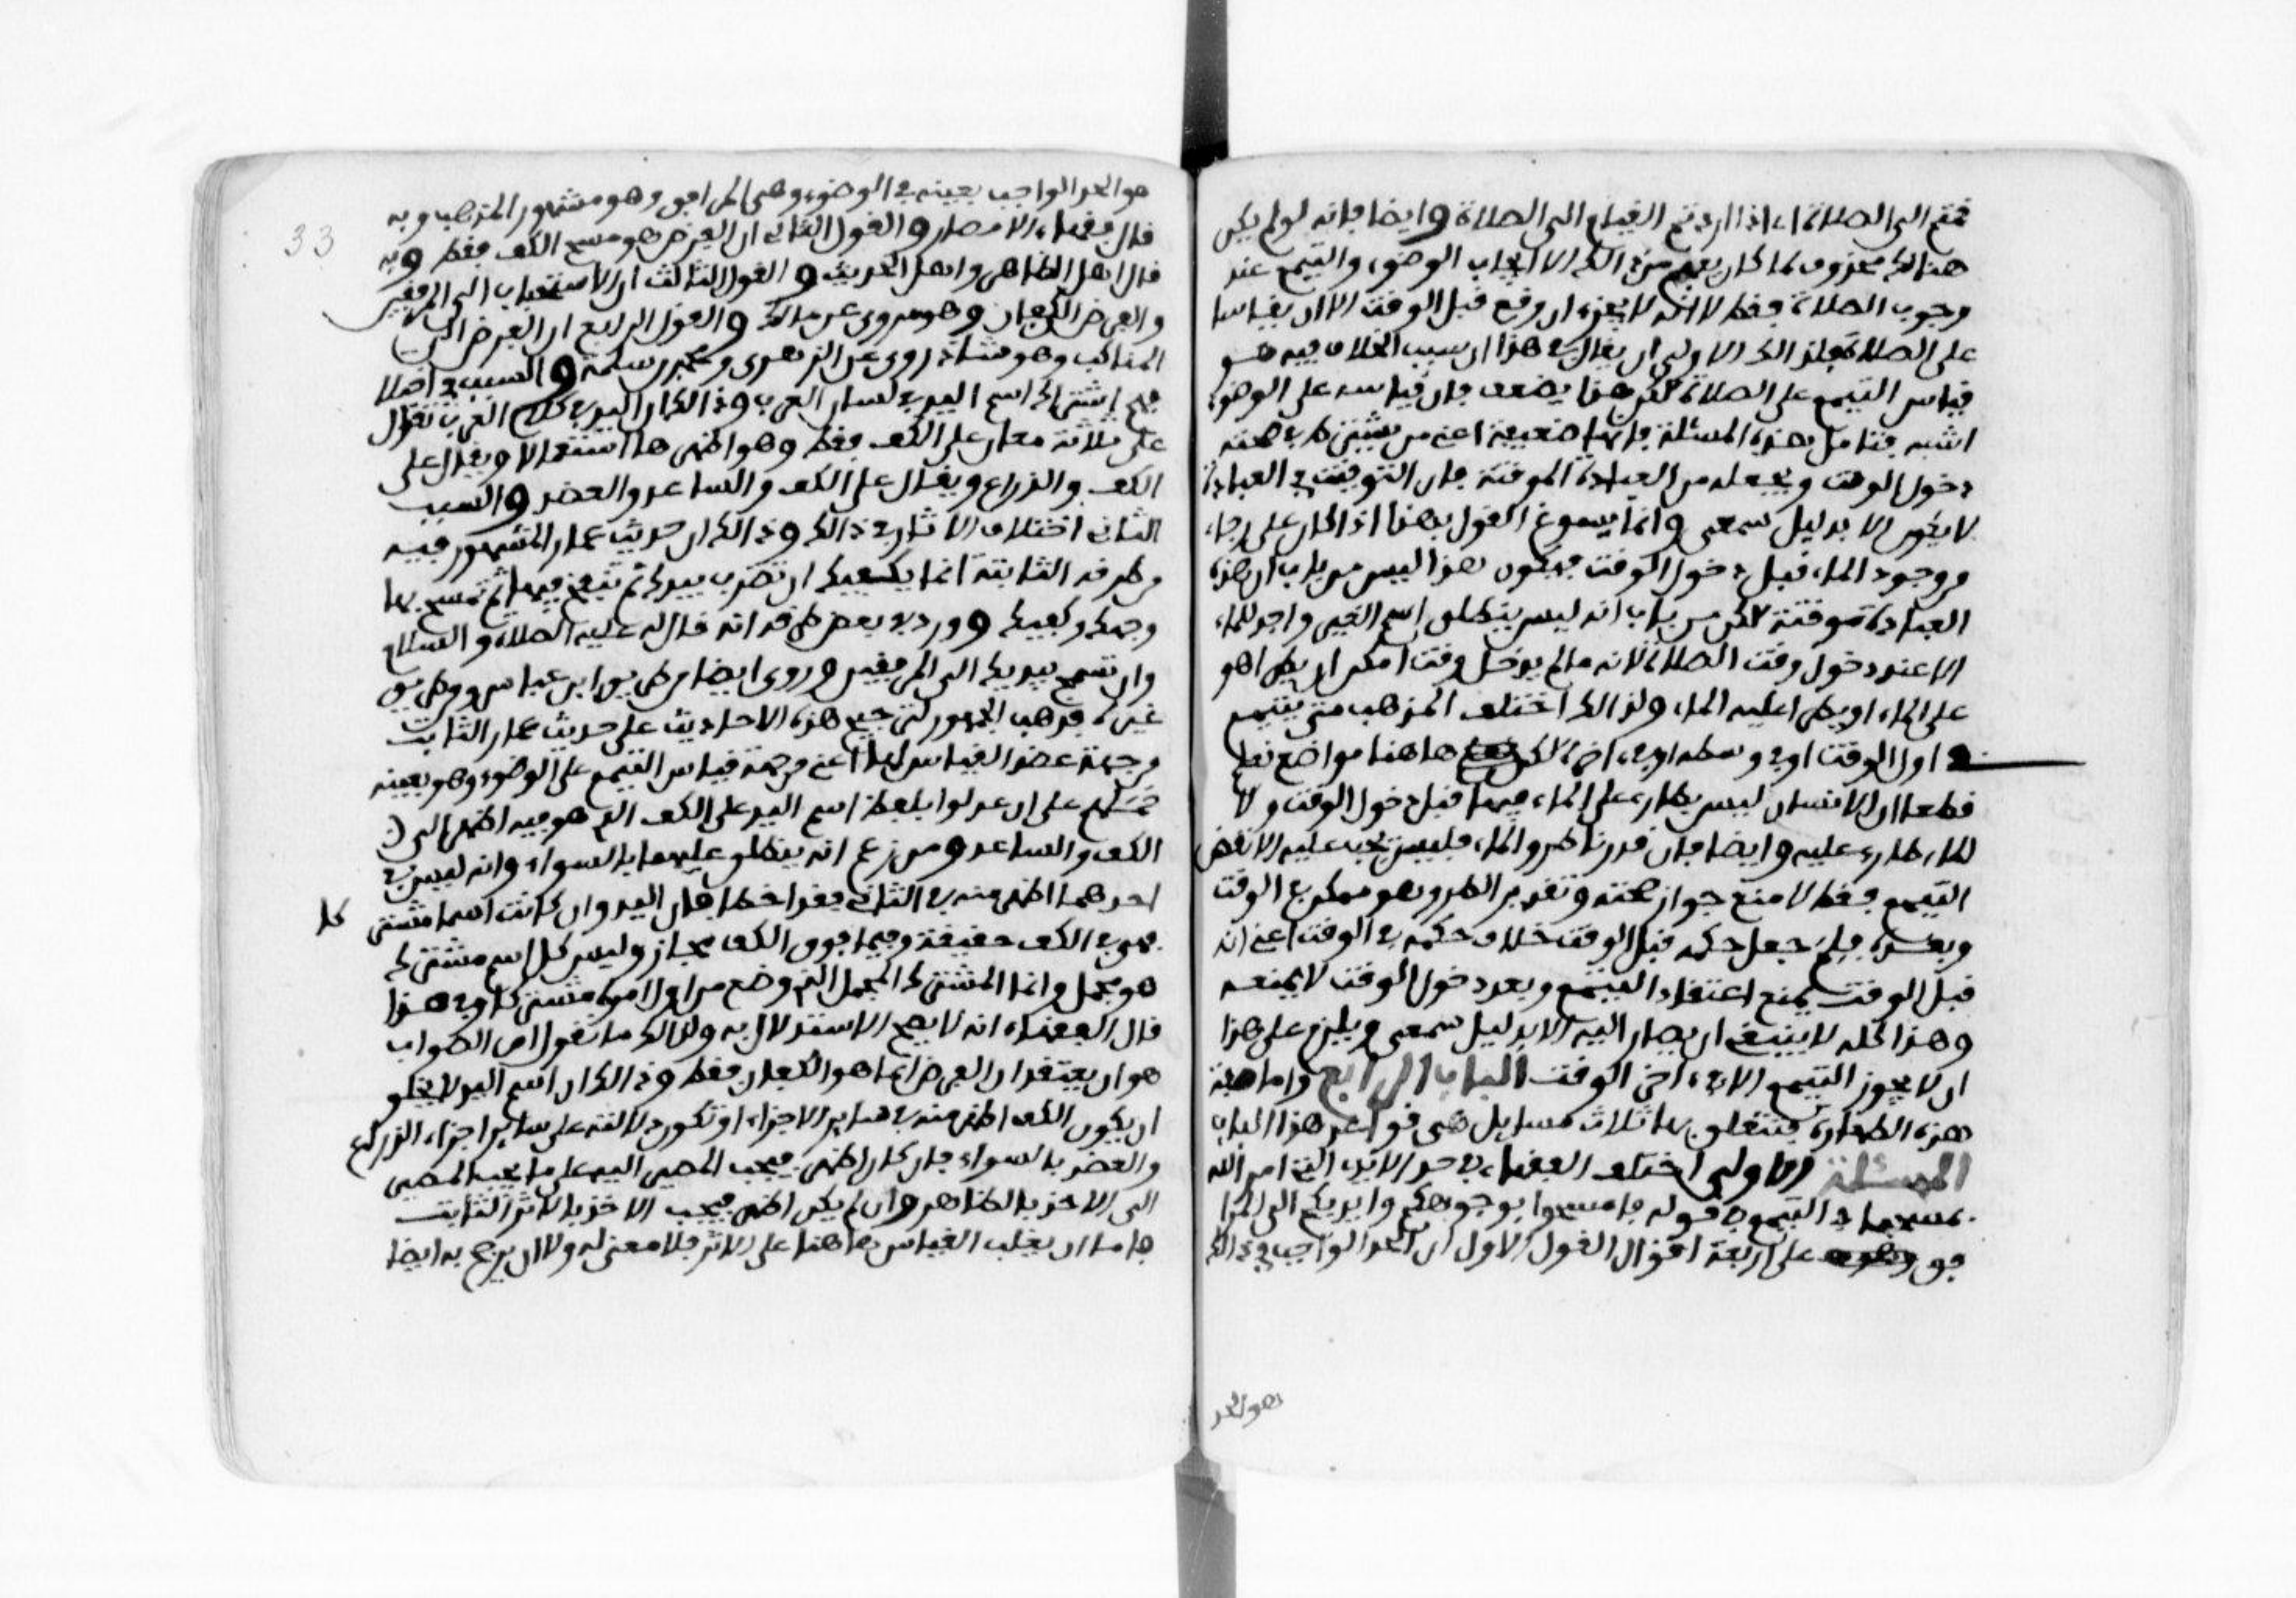 قمتم الى الصلاة اي اذا اردتم القيام الى الصلاة وايضا فانه لو لم يكن
هنالك محذوف لما كان يفهم من ذالك الا ايجاب الوضوء والتيمم عند
وجوب الصلاة فقط لا انه لا يجزء ان وقع قبل الوقت الا ان يقاسا
على الصلاة فلذالك الاولى ان يقال في هذا ان سبب الخلاف فيه هو
قياس التيمم على الصلاة لكن هذا يضعف فان قياسه على الوضوء
اشبه فتامل هذه المسئلة فانها ضعيفة اعني من يشترط في صحته
دخول الوقت ويجعله من العبادة الموقتة فان التوقيت في العبادة
لا يكون الا بدليل سمعي وانما يسوغ القول بهذا اذا كان على رجاء
من وجود الماء قبل دخول الوقت فيكون هذا ليس من باب ان هذه
العبادة موقتة لكن من باب انه ليس ينطلق اسم الغير واجد للماء
الا عند دخول وقت الصلاة لانه ما لم يدخل وقتها امكن ان يطرا هو
على الماء او يطرا عليه الماء ولذالك اختلف المذهب متى يتيمم
في اول الوقت او في وسطه او في اخره لكن هاهنا مواضع نعلم
قطعا ان الانسان ليس بطارء على الماء فيها قبل دخول الوقت ولا
الماء طارء عليه وايضا فان قدرنا طرو الماء فليس يجب عليه الا نقض
التيمم فقط لا منع جواز صحته وتقدير الطرو هو ممكن في الوقت
وبعده فلم جعل حكمه قبل الوقت خلاف حكمه في الوقت اعني انه
قبل الوقت يمنع انعقاد التيمم وبعد دخول الوقت لا يمنعه
وهذا كله لا ينبغي ان يصار اليه الا بدليل سمعي ويلزم على هذا
ان لا يجوز التيمم الا في اخر الوقت الباب الرابع واما صفة
هذه الطهارة فيتعلق بها ثلاث مسايل هي قواعد هذا الباب
المسئلة الاولى اختلف الفقهاء في حد الايدي التي امر الله
بمسحها في التيمم في قوله فامسحوا بوجوهكم وايديكم الى المرا
فق على اربعة اقوال القول الاول ان الحد الواجب في ذالك
هو الحد
33
هو الحد الواجب بعينه في الوضوء وهي المرافق وهو مشهور المذهب وبه
قال فقهاء الامصار والقول الثاني ان الفرض هو مسح الكف فقط وبه
قال اهل الظاهر واهل الحديث والقول الثالث ان الاستحباب الى المرفقين
والفرض الكفان وهو مروى عن مالك والقول الرابع ان الفرض الى
المناكب وهو شاذ روى عن الزهري ومحمد بن سلمة والسبب في اختلا
فهم اشتراك اسم اليد في لسان العرب وذالك ان اليد في كلام العرب تقال
على ثلاثة معان على الكف فقط وهو اظهرها استعمالا ويقال على
الكف والذراع ويقال على الكف والساعد والعضد والسبب
الثاني اختلاف الاثار في ذالك وذالك ان حديث عمار المشهور فيه
من طرقه الثابتة انما يكفيك ان تضرب بيدك ثم تنفخ فيها ثم تمسح بها
وجهك وكفيك وورد في بعض طرقه انه قال له عليه الصلاة والسلام
وان تمسح بيديك الى المرفقين وروى ايضا من طريق ابن عباس ومن طريق
غيره فذهب الجمهور لترجيح هذه الاحاديث على حديث عمار الثابت
من جهة عضد القياس لها اعني من جهة قياس التيمم على الوضوء وهو بعينه
حملهم على ان عدلوا بلفظ اسم اليد على الكف الذي هو فيه اظهر الى
الكف والساعد ومن زعم انه ينطلق عليهما بالسواء وانه ليس في
احدهما اظهر منه في الثاني فقد اخطا فان اليد وان كانت اسما مشتر
كا
فهي في الكف حقيقة وفيما فوق الكف مجاز وليس كل اسم مشترك
هو مجمل وانما المشترك المجمل الذي وضع من اول امره مشتركا وفي هذا
قال الفقهاء انه لا يصح الاستدلال به ولذالك ما نقول ان الصواب
هو ان يعتقد ان الفرض انما هو الكفان فقط وذالك ان اسم اليد لا يخلو
ان يكون الكف اظهر منه في سائر الاجزاء او تكون دلالته على سائر اجزاء الذراع
والعضد بالسواء فان كان اظهر فيجب المصير اليه على ما يجب المصير
الى الاخذ بالظاهر وان لم يكن اظهر فيجب الاخذ بالاثر الثابت
فاما ان يغلب القياس هاهنا على الاثر فلا معنى له ولا ان يرجح به ايضا